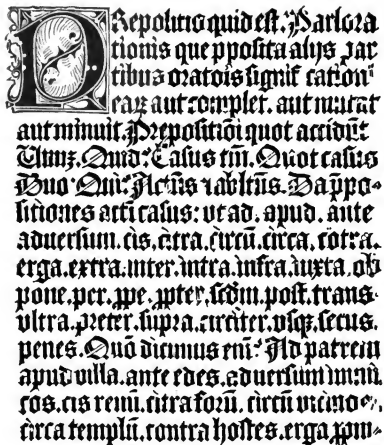 PRepositio quid est. Pars ora
tionis que pposita alijs par
tibus oratiõis significationẽ
earũ aut complet. aut mutat
aut minuit. Prepositiõi quot accidũt
Unũ. Quid? Casus tm̃. Quot casus
Duo Qui? Actũs ⁊ abltũs. Da ppo⸗
sitiones acti casus: vt ad. apud. ante
aduersum. cis. citra. circũ. circa. cõtra.
erga. extra. inter. intra. infra. iuxta. ob
pone. per. ꝓpe. ꝓpter. scdm̃. post. trans
vltra. preter. supra. circiter. vsqꝫ. secus.
penes. Quõ dicimus eni? Ad patrem
apud villa. ante edes. aduersum inimi
cos. cis renũ. citra forũ. circũ vicino⸗
circa templũ. contra hostes. erga